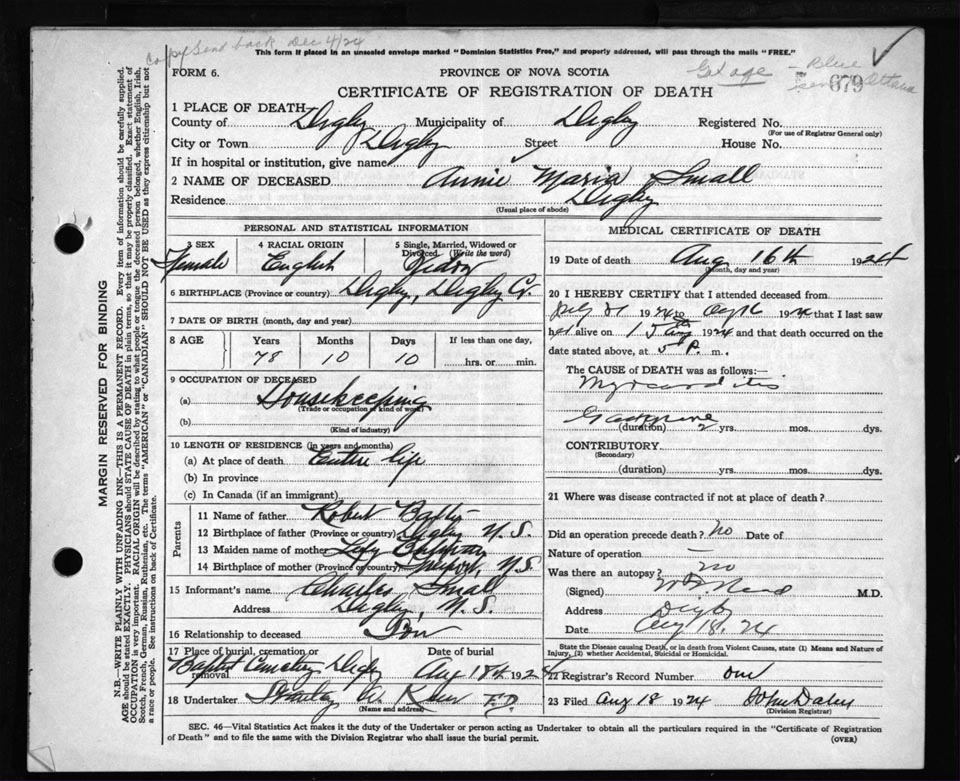 Copy Send back Dec 4/24
This form if placed in an unsealed envelope marked "Dominion Statistics Free," and properly addressed, will pass through the mails "FREE."
FORM 6.
PROVINCE OF NOVA SCOTIA
Got age - Blue
679
Ottawa
CERTIFICATE OF REGISTRATION OF DEATH
1 PLACE OF DEATH
County of Digby Municipality of Digby Registered No.
(For use of Registrar General only)
City or Town Digby Street House No.
If in hospital or institution, give name
2 NAME OF DECEASED Annie Maria Small
Residence Digby
(Usual place of abode)
PERSONAL AND STATISTICAL INFORMATION
3 SEX 4 RACIAL ORIGIN 5 Single, Married, Widowed or Divorced (Write the word)
Female English Widow
6 BIRTHPLACE (Province or country) Digby, Digby Co.
7 DATE OF BIRTH (month, day and year)
8 AGE Years Months Days If less than one day,
78 10 10 hrs. or min.
9 OCCUPATION OF DECEASED
(a) Housekeeping
(Trade or occupation or kind of work)
(b)
(Kind of industry)
10 LENGTH OF RESIDENCE (in years and months)
(a) At place of death Entire life
(b) In province
(c) In Canada (if an immigrant)
Parents
11 Name of father Robert
12 Birthplace of father (Province or country) Digby N. S.
13 Maiden name of mother
14 Birthplace of mother (Province or country) N. S.
15 Informant's name Charles Small
Address Digby, N. S.
16 Relationship to deceased Son
17 Place of burial, cremation or removal Date of burial
Baptist Cemetery Digby Aug 18th 1924
18 Undertaker
(Name and address)
MEDICAL CERTIFICATE OF DEATH
19 Date of death Aug 16th 1924
(Month, day and year)
20 I HEREBY CERTIFY that I attended deceased from
1924 to 1924 that I last saw
h alive on 15th Aug 1924 and that death occurred on the
date stated above, at 5 P. m.
The CAUSE of DEATH was as follows:—
Myocarditis
Gangrene
(duration) yrs. mos. dys.
CONTRIBUTORY
(Secondary)
(duration) yrs. mos. dys.
21 Where was disease contracted if not at place of death?
Did an operation precede death? no Date of
Nature of operation —
Was there an autopsy? no
(Signed) M.D.
Address Digby
Date Aug 18. 24
State the Disease causing Death, or in death from Violent Causes, state (1) Means and Nature of Injury, (2) whether Accidental, Suicidal or Homicidal.
22 Registrar's Record Number one
23 Filed Aug 18 1924 John Daley
(Division Registrar)
SEC. 46—Vital Statistics Act makes it the duty of the Undertaker or person acting as Undertaker to obtain all the particulars required in the "Certificate of Registration
of Death" and to file the same with the Division Registrar who shall issue the burial permit.
(OVER)
MARGIN RESERVED FOR BINDING
N.B.—WRITE PLAINLY WITH UNFADING INK—THIS IS A PERMANENT RECORD. Every item of information should be carefully supplied.
AGE should be stated EXACTLY. PHYSICIANS should STATE CAUSE OF DEATH in plain terms, so that it may be properly classified. Exact statement of
OCCUPATION is very important. RACIAL ORIGIN will be described by stating to what people or tongue the deceased person belonged, whether English, Irish,
Scotch, French, German, Russian, Ruthenian, etc. The terms "AMERICAN" or "CANADIAN" SHOULD NOT BE USED as they express citizenship but not
a race or people. See instructions on back of Certificate.